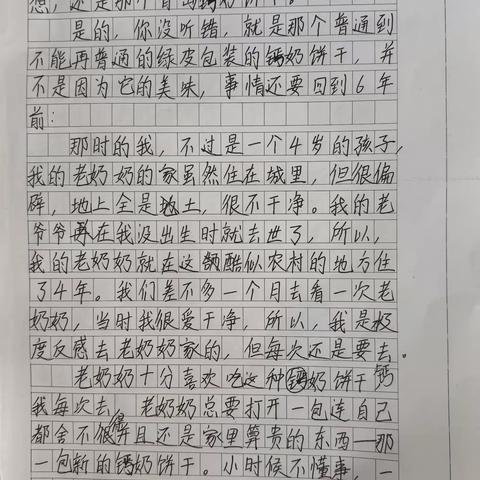 想，还是那个青岛钙奶饼干。
是的，你没听错，就是那个普通到
不能再普通的绿皮包装的钙奶饼干，并
不是因为它的美味，事情还要回到6年
前：
那时的我，不过是一个4岁的孩子，
我的老奶奶的家虽然住在城里，但很偏
僻，地上全是土，很不干净。我的老
爷爷在我没出生时就去世了，所以，
我的老奶奶就在这酷似农村的地方住
了4年。我们差不多一个月去看一次老
奶奶，当时我很爱干净，所以，我是极
度反感去老奶奶家的，但每次还是要去。
老奶奶十分喜欢吃这种钙奶饼干
我每次去，老奶奶总要打开一包连自己
都舍不得并且还是家里算贵的东西——那
一包新的钙奶饼干。小时候不懂事，一